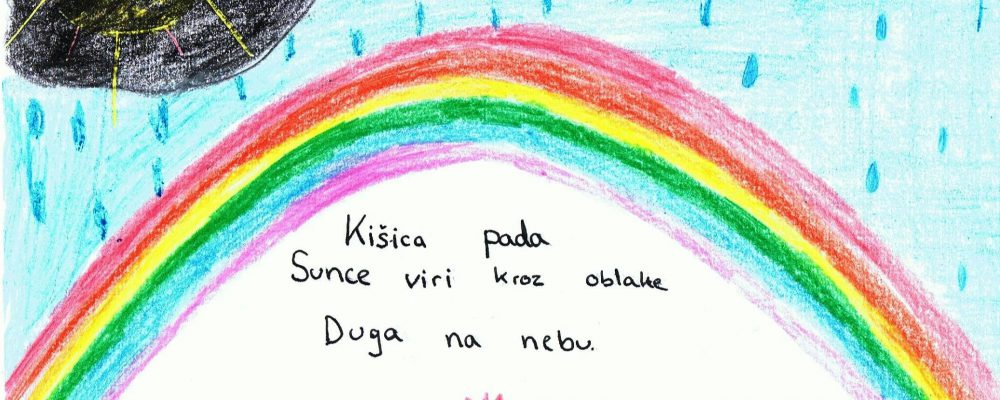 Kišica pada
Sunce viri kroz oblake
Duga na nebu.